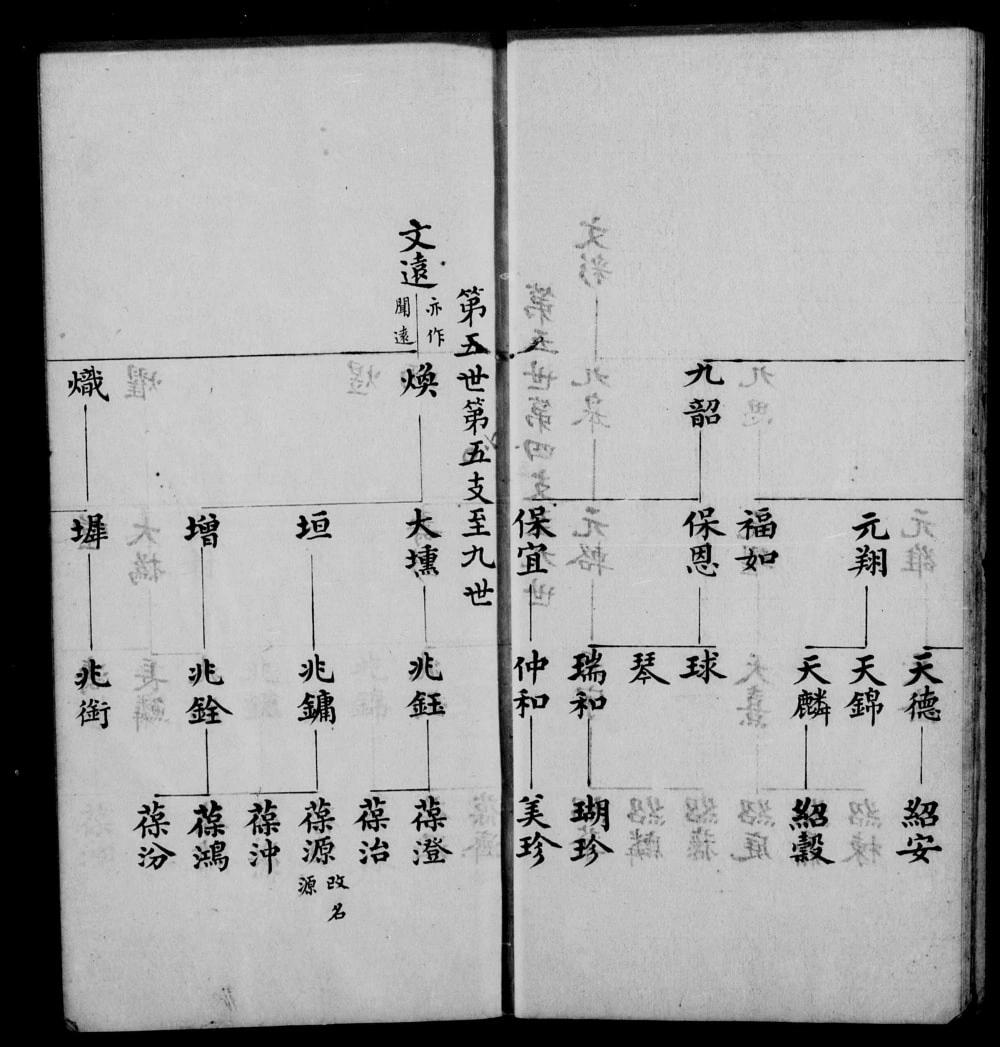 九韶
元翔
福如
保恩
保宜
天德
天錦
天麟
球
琴
瑞和
仲和
紹安
紹穀
瑚珍
美珍
第五世第五支至九世
文遠
亦作
聞遠
煥
熾
大壎
垣
增
墀
兆鈺
兆鏞
兆銓
兆銜
葆澄
葆治
葆源
改名
源
葆沖
葆鴻
葆汾